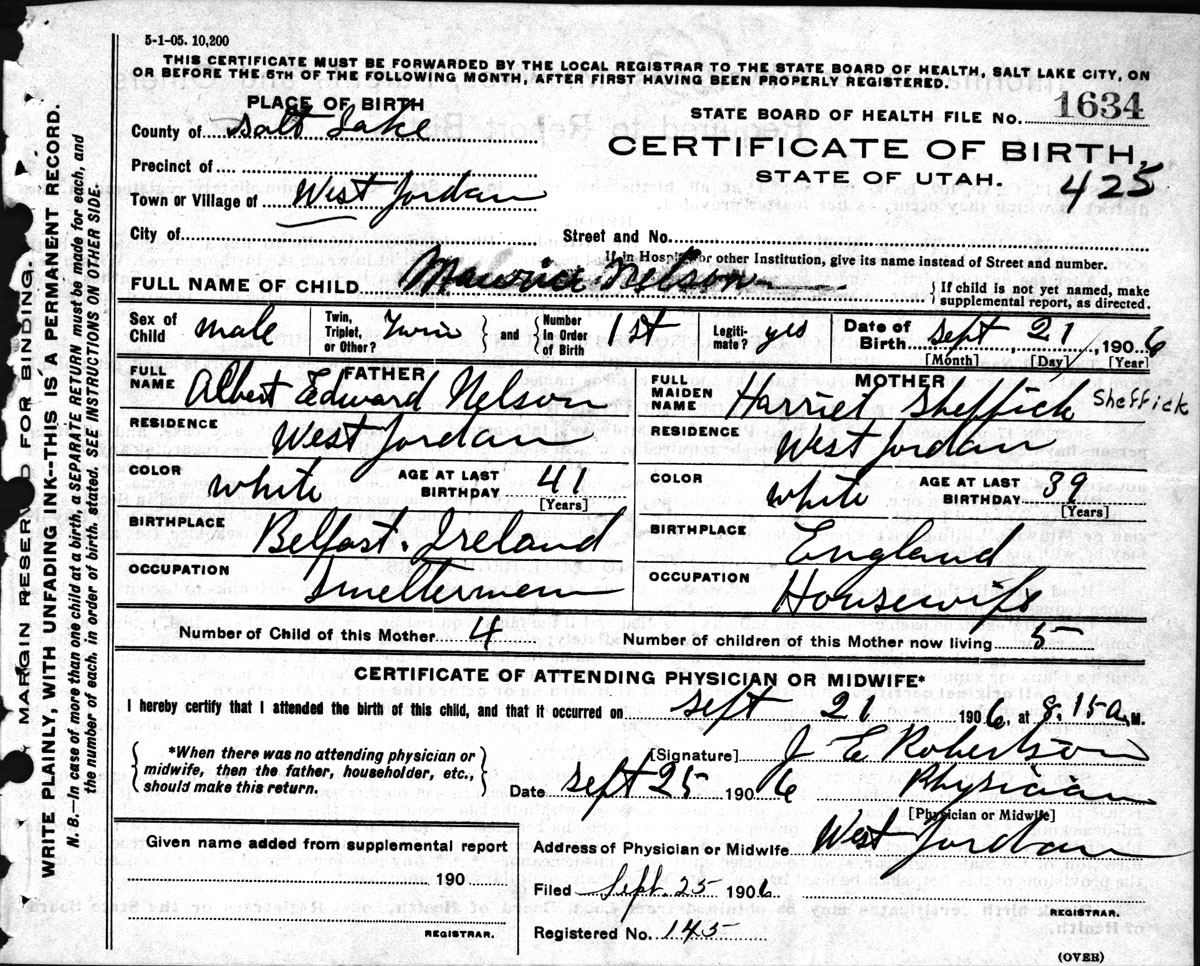 5-1-05. 10,200
THIS CERTIFICATE MUST BE FORWARDED BY THE LOCAL REGISTRAR TO THE STATE BOARD OF HEALTH, SALT LAKE CITY, ON
OR BEFORE THE 5TH OF THE FOLLOWING MONTH, AFTER FIRST HAVING BEEN PROPERLY REGISTERED.
PLACE OF BIRTH
County of Salt Lake
Precinct of
Town or Village of West Jordan
STATE BOARD OF HEALTH FILE No. 1634
CERTIFICATE OF BIRTH,
STATE OF UTAH.
425
City of Street and No.
If in Hospital or other Institution, give its name instead of Street and number.
FULL NAME OF CHILD Nelson { If child is not yet named, make
supplemental report, as directed.
Sex of
Child male
Twin,
Triplet,
or Other? Twin } and { Number
in Order
of Birth 1st
Legiti-
mate? yes
Date of
Birth Sept 21, 1906
[Month] [Day] [Year]
FATHER
FULL
NAME Albert Edward Nelson
MOTHER
FULL
MAIDEN
NAME Harriet Sheffick Sheffick
RESIDENCE West Jordan
RESIDENCE West Jordan
COLOR white AGE AT LAST
BIRTHDAY 41
[Years]
COLOR white AGE AT LAST
BIRTHDAY 39
[Years]
BIRTHPLACE Belfast. Ireland
BIRTHPLACE England
OCCUPATION Smeltermen
OCCUPATION Housewife
Number of Child of this Mother 4 Number of children of this Mother now living 5
CERTIFICATE OF ATTENDING PHYSICIAN OR MIDWIFE*
I hereby certify that I attended the birth of this child, and that it occurred on Sept 21 1906, at 8.15 a. M.
{ *When there was no attending physician or
midwife, then the father, householder, etc.,
should make this return. }
[Signature] J E Robertson
Date Sept 25 1906 Physician
[Physician or Midwife]
Address of Physician or Midwife West Jordan
Given name added from supplemental report
190
REGISTRAR.
Filed Sept. 25 1906
REGISTRAR.
Registered No. 143
(OVER)
MARGIN RESERVED FOR BINDING.
WRITE PLAINLY, WITH UNFADING INK--THIS IS A PERMANENT RECORD.
N. B.—In case of more than one child at a birth, a SEPARATE RETURN must be made for each, and
the number of each, in order of birth, stated. SEE INSTRUCTIONS ON OTHER SIDE.